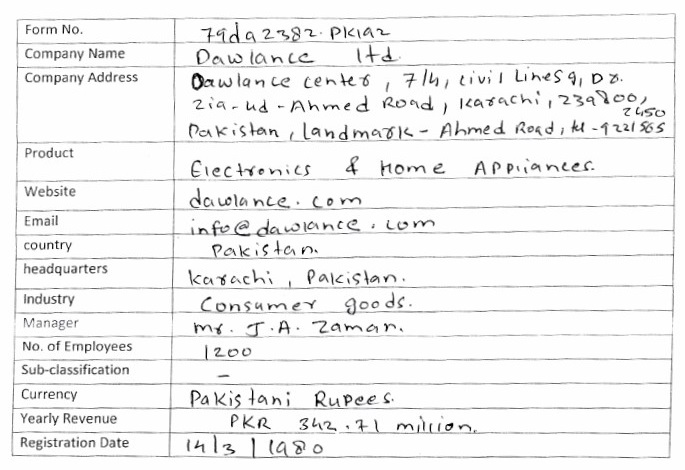 Form No. 79da2382.PK192
Company Name Dawlance ltd.
Company Address Dawlance center, 7/4, civil Lines 9, Dr.
zia-ud-Ahmed Road, Karachi, 239800,
Pakistan, landmark - Ahmed Road, tel - 9221565
2450
Product Electronics & Home Appliances.
Website dawlance.com
Email info@dawlance.com
country Pakistan.
headquarters Karachi, Pakistan.
Industry Consumer goods.
Manager mr. J.A. Zaman.
No. of Employees 1200
Sub-classification –
Currency Pakistani Rupees.
Yearly Revenue PKR 342.71 million.
Registration Date 14/3/1980